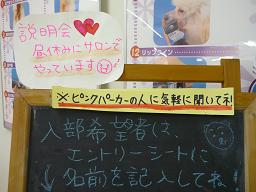 説明会
昼休みにサロンで
やっています
12 リップライン
※ピンクパーカーの人に気軽に聞いてネ
入部希望者は、
エントリーシートに
名前を記入してね